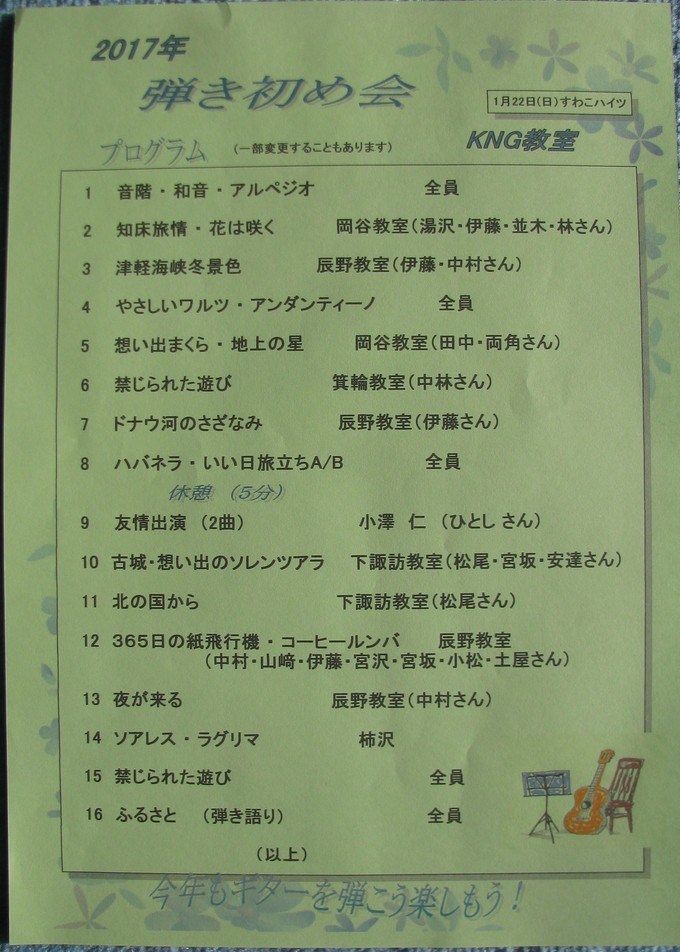 2017年
弾き初め会
1月22日(日)すわこハイツ
プログラム (一部変更することもあります) KNG教室
1 音階・和音・アルペジオ 全員
2 知床旅情・花は咲く 岡谷教室(湯沢・伊藤・並木・林さん)
3 津軽海峡冬景色 辰野教室(伊藤・中村さん)
4 やさしいワルツ・アンダンティーノ 全員
5 想い出まくら・地上の星 岡谷教室(田中・両角さん)
6 禁じられた遊び 箕輪教室(中林さん)
7 ドナウ河のさざなみ 辰野教室(伊藤さん)
8 ハバネラ・いい日旅立ちA/B 全員
休憩 (5分)
9 友情出演 (2曲) 小澤 仁 (ひとし さん)
10 古城・想い出のソレンツアラ 下諏訪教室(松尾・宮坂・安達さん)
11 北の国から 下諏訪教室(松尾さん)
12 365日の紙飛行機・コーヒールンバ 辰野教室
(中村・山﨑・伊藤・宮沢・宮坂・小松・土屋さん)
13 夜が来る 辰野教室(中村さん)
14 ソアレス・ラグリマ 柿沢
15 禁じられた遊び 全員
16 ふるさと (弾き語り) 全員
(以上)
今年もギターを弾こう楽しもう!